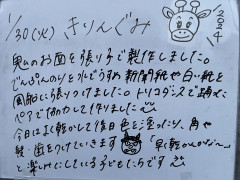 1/30(火) きりんぐみ
2024
鬼のお面を張り子で製作しました。
でんぷんのりと水どうすめ新聞紙や白い紙を
風船に張りつけました。トリコダンスで踊った
ペアで協力して作りました
今日はよく乾かして後日色を塗ったり、角や
髪・歯をつけていきます 「早く乾かないかな〜」
と楽しみにしている子どもたちです